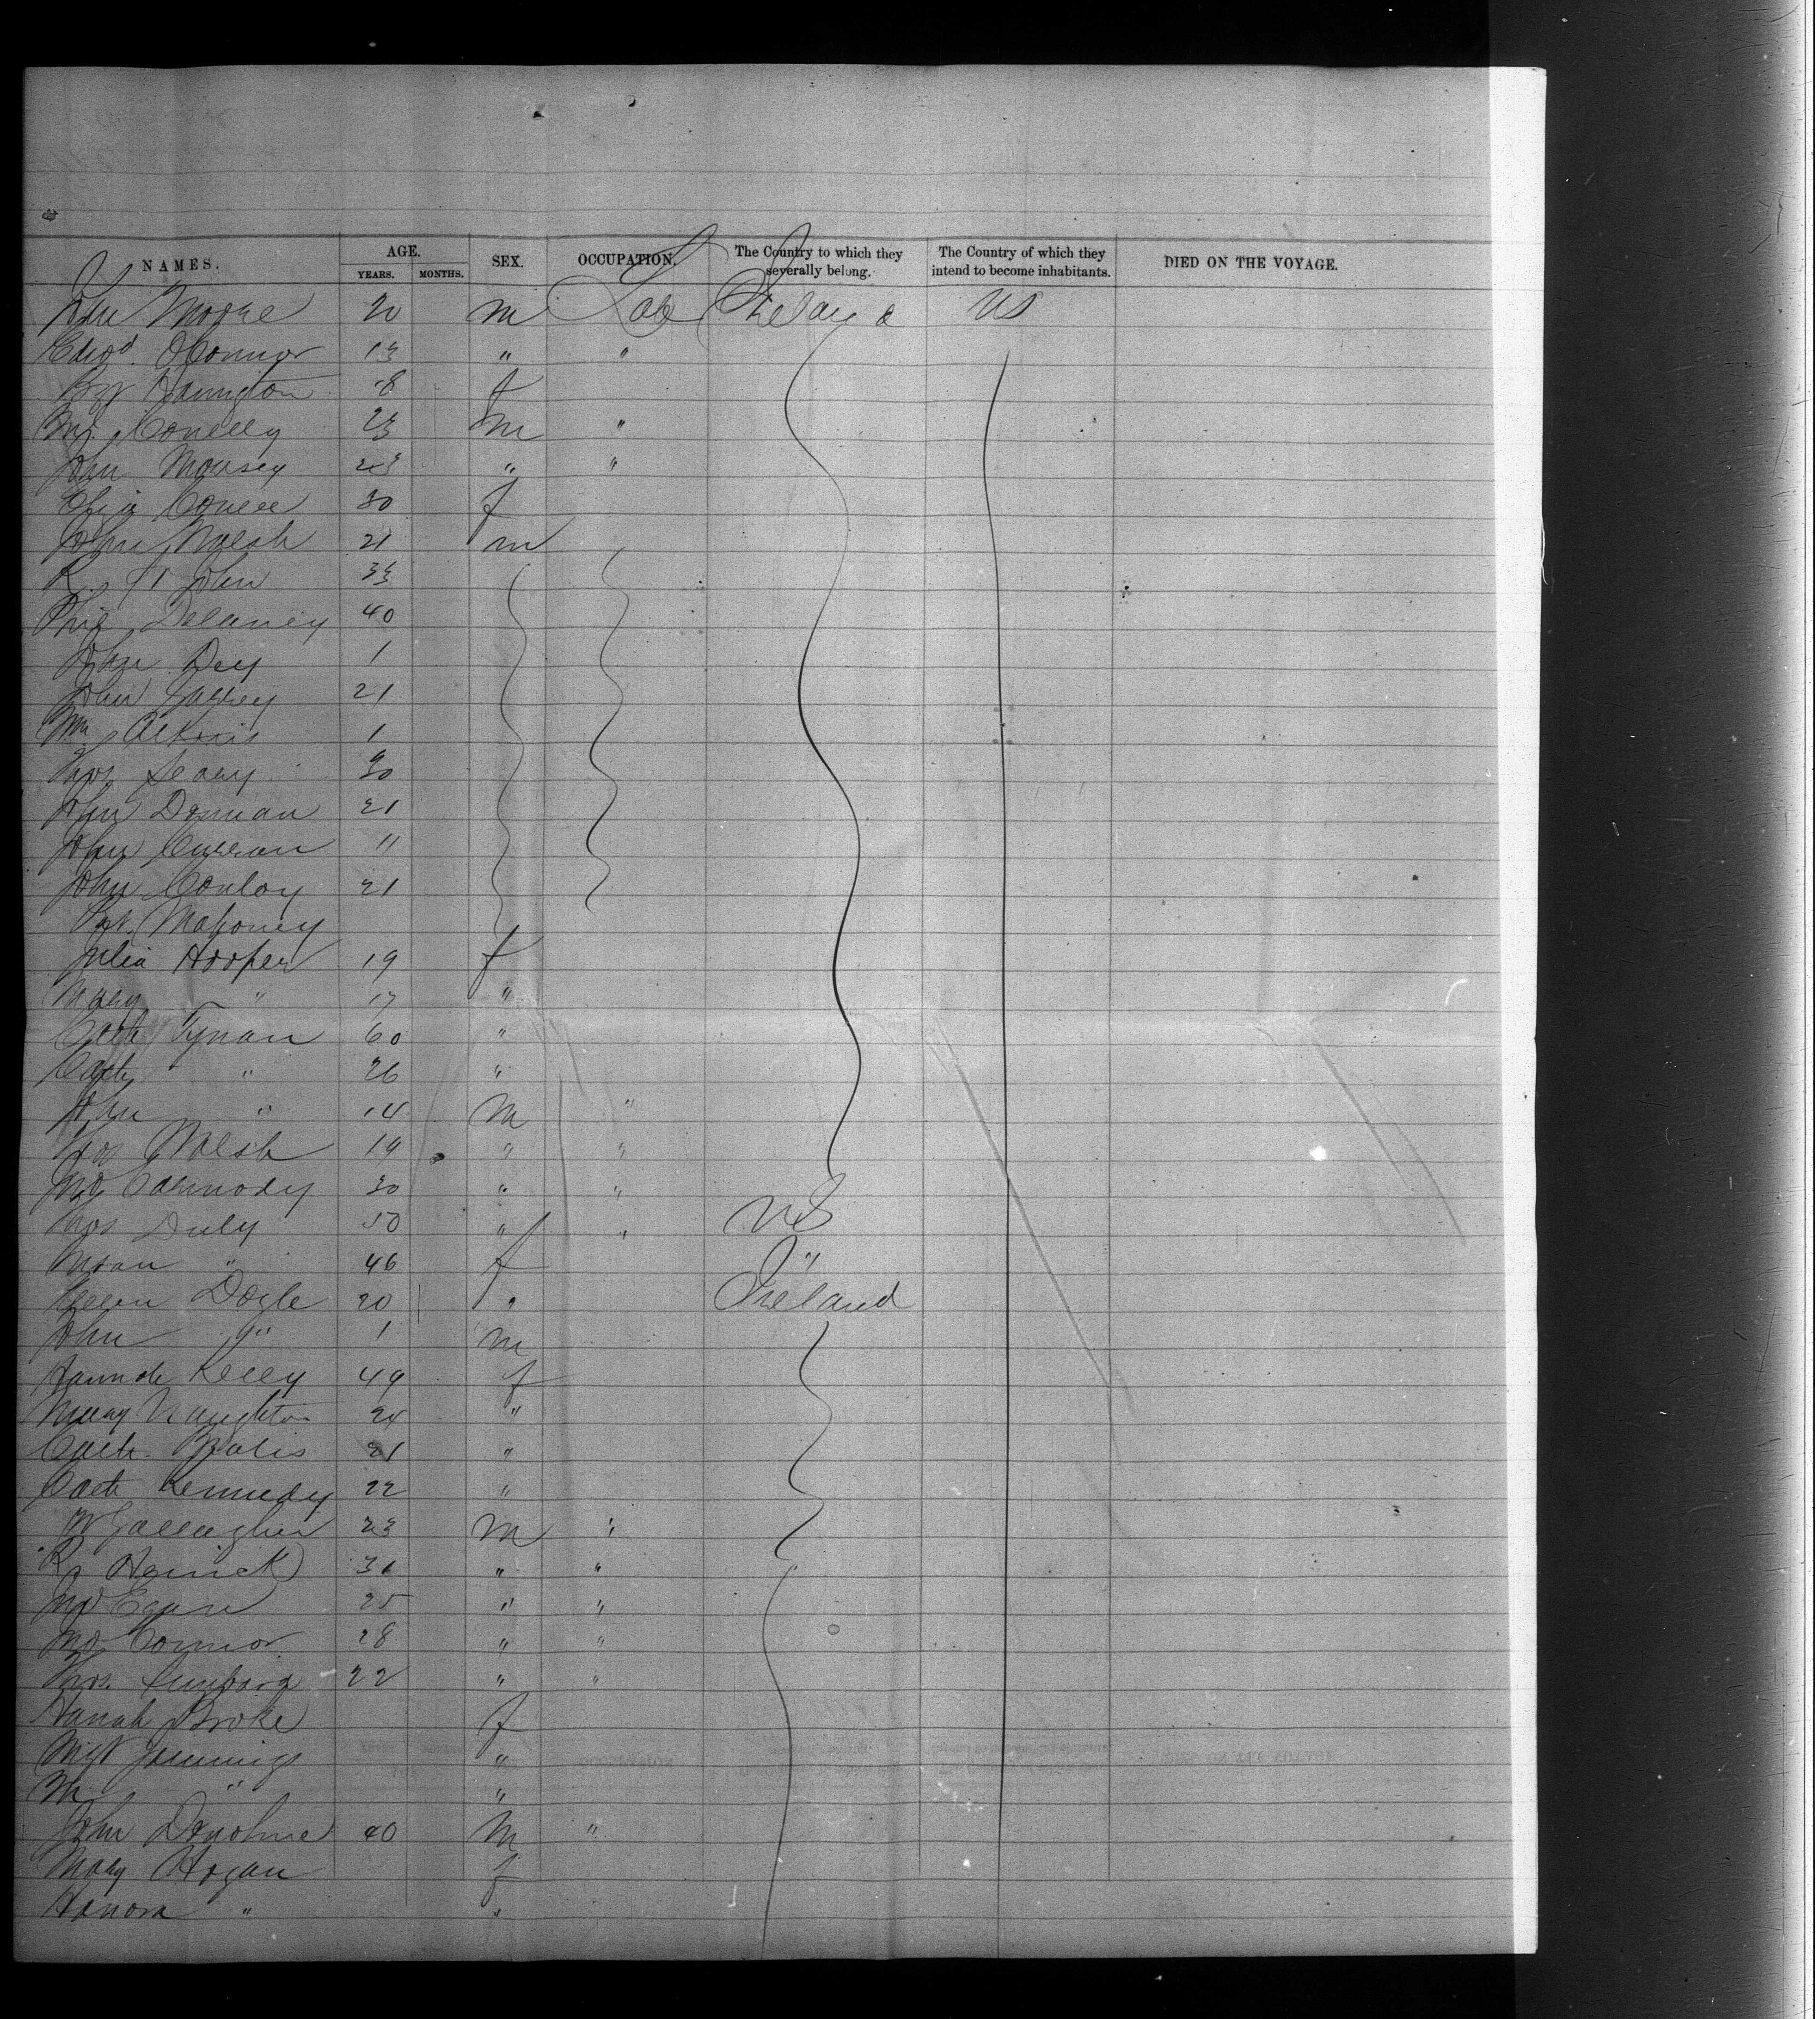 NAMES. AGE. YEARS. MONTHS. SEX. OCCUPATION. The Country to which they severally belong. The Country of which they intend to become inhabitants. DIED ON THE VOYAGE.
John Moore 20 m Lab Ireland US
Edwd. OConnor 13 " "
Harington 8 f
Conelly 23 m "
John Mousey 23 " "
Eliza Conell 30 f
John Walsh 21 m
R. St John 33
Delaney 40
John Dey 1
John 21
Wm 1
Thos Leary 30
John Dornan 21
John Curran 11
John Conloy 21
Pat. Mahoney
Julia Hooper 19 f
Mary " 17 "
Cath Tynan 60 "
Cath " 26 "
John " 14 m "
Thos Walsh 19 " "
Carmody 30 " "
Thos Duly 50 " " US
" 46 f "
Ellen Doyle 20 " Ireland
John " 1 m
Hannah Kelly 49 f
Mary Naughton 24 "
Cath. 21 "
Cath Kennedy 22 "
Gallagher 23 m "
R. 31 " "
Egan 25 " "
Connor 28 " "
Thos. 22 " "
Hanah Broke f
Mgt Jennings "
M "
John Donohue 40 m "
Mary Hogan f
Hanora " "